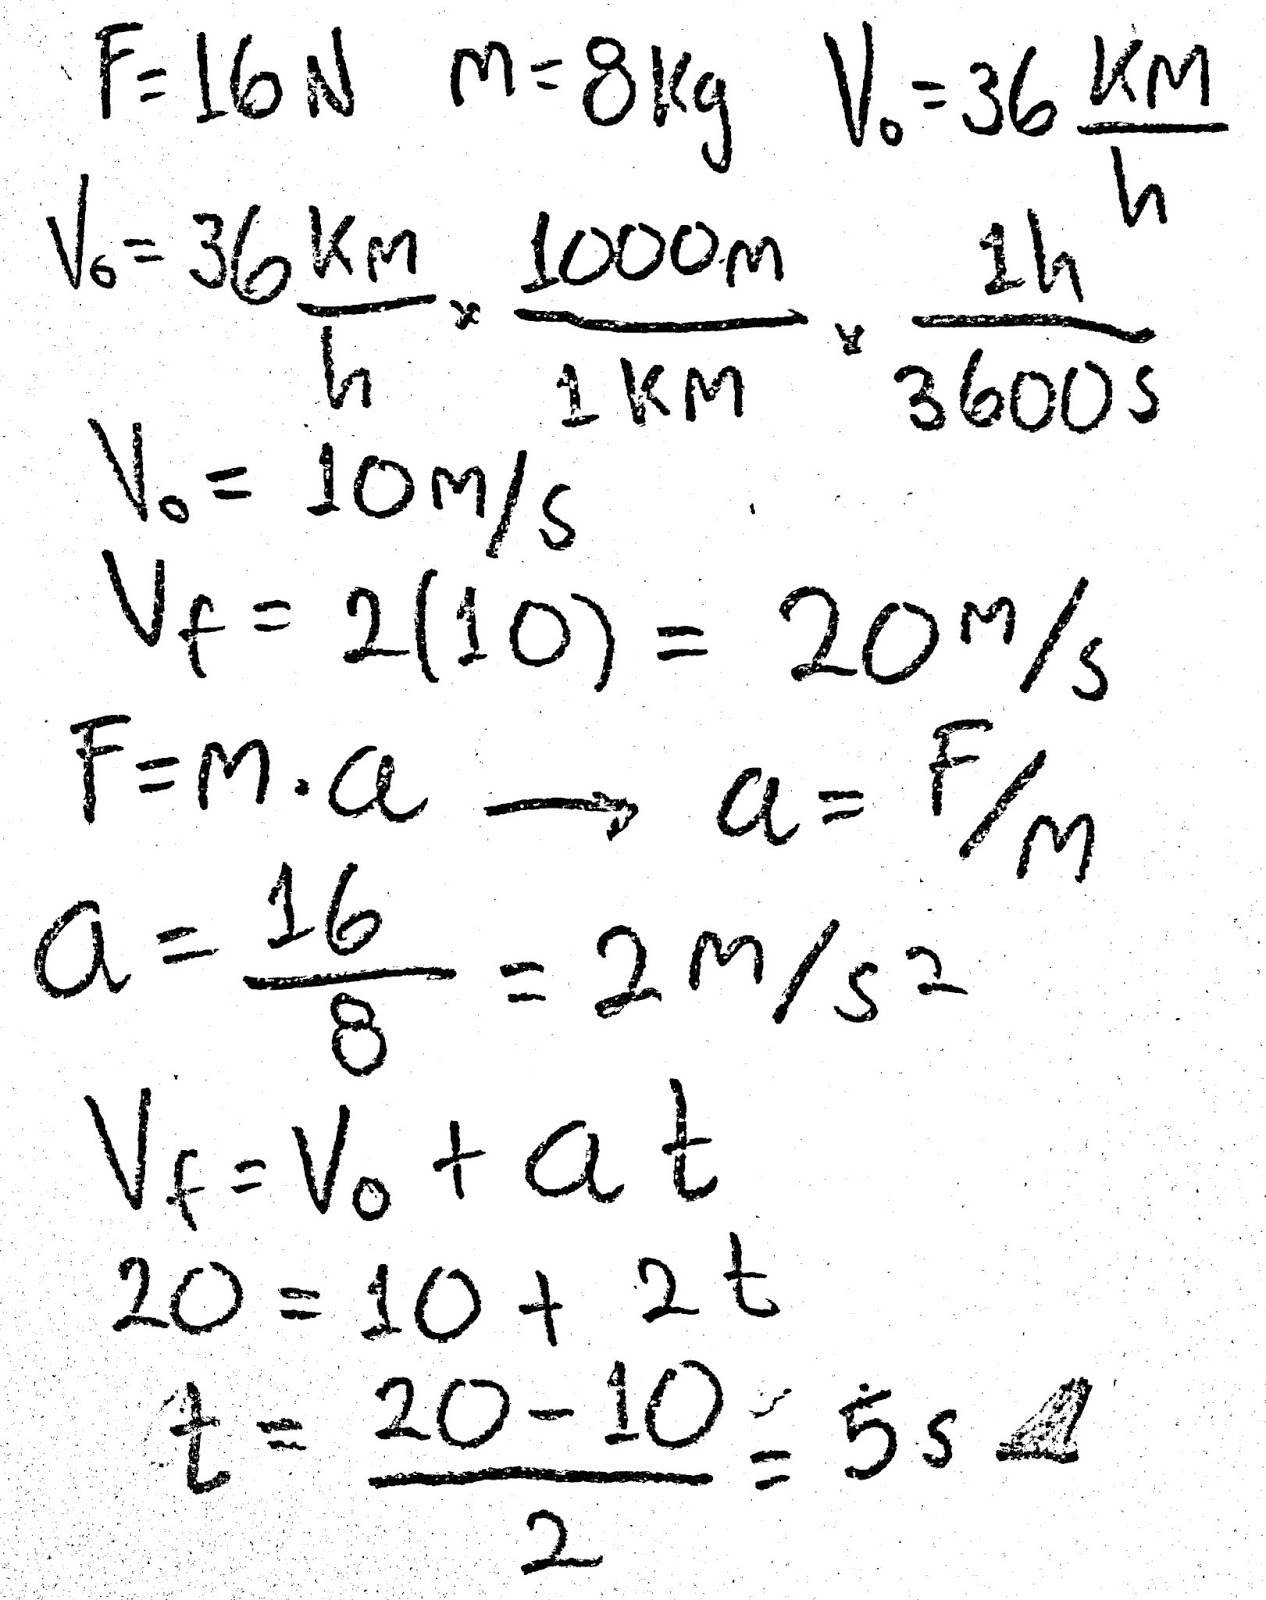 F=16N m=8Kg V₀=36 KM/h
V₀=36 KM/h × 1000m/1KM × 1h/3600s
V₀= 10m/s
Vf = 2(10) = 20m/s
F=m.a → a=F/m
a = 16/8 = 2m/s²
Vf=V₀+at
20=10+2t
t = 20-10/2 = 5s